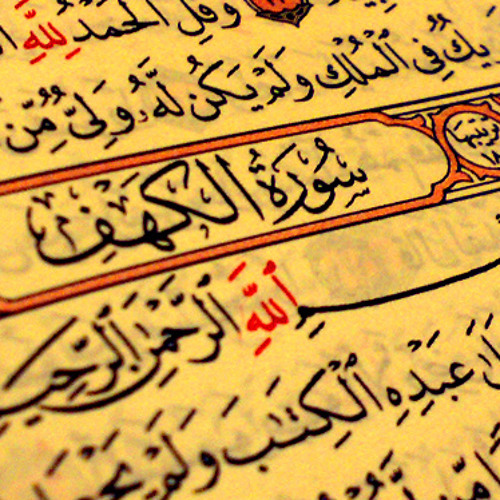 وَقُلِ ٱلْحَمْدُ لِلَّهِ
يكٌ فِى ٱلْمُلْكِ وَلَمْ يَكُن لَّهُۥ وَلِىٌّ مِّنَ
سُورَةُ الكَهْفِ
بِسْمِ ٱللَّهِ ٱلرَّحْمَٰنِ ٱلرَّحِيمِ
عَبْدِهِ ٱلْكِتَٰبَ وَلَمْ يَجْعَل